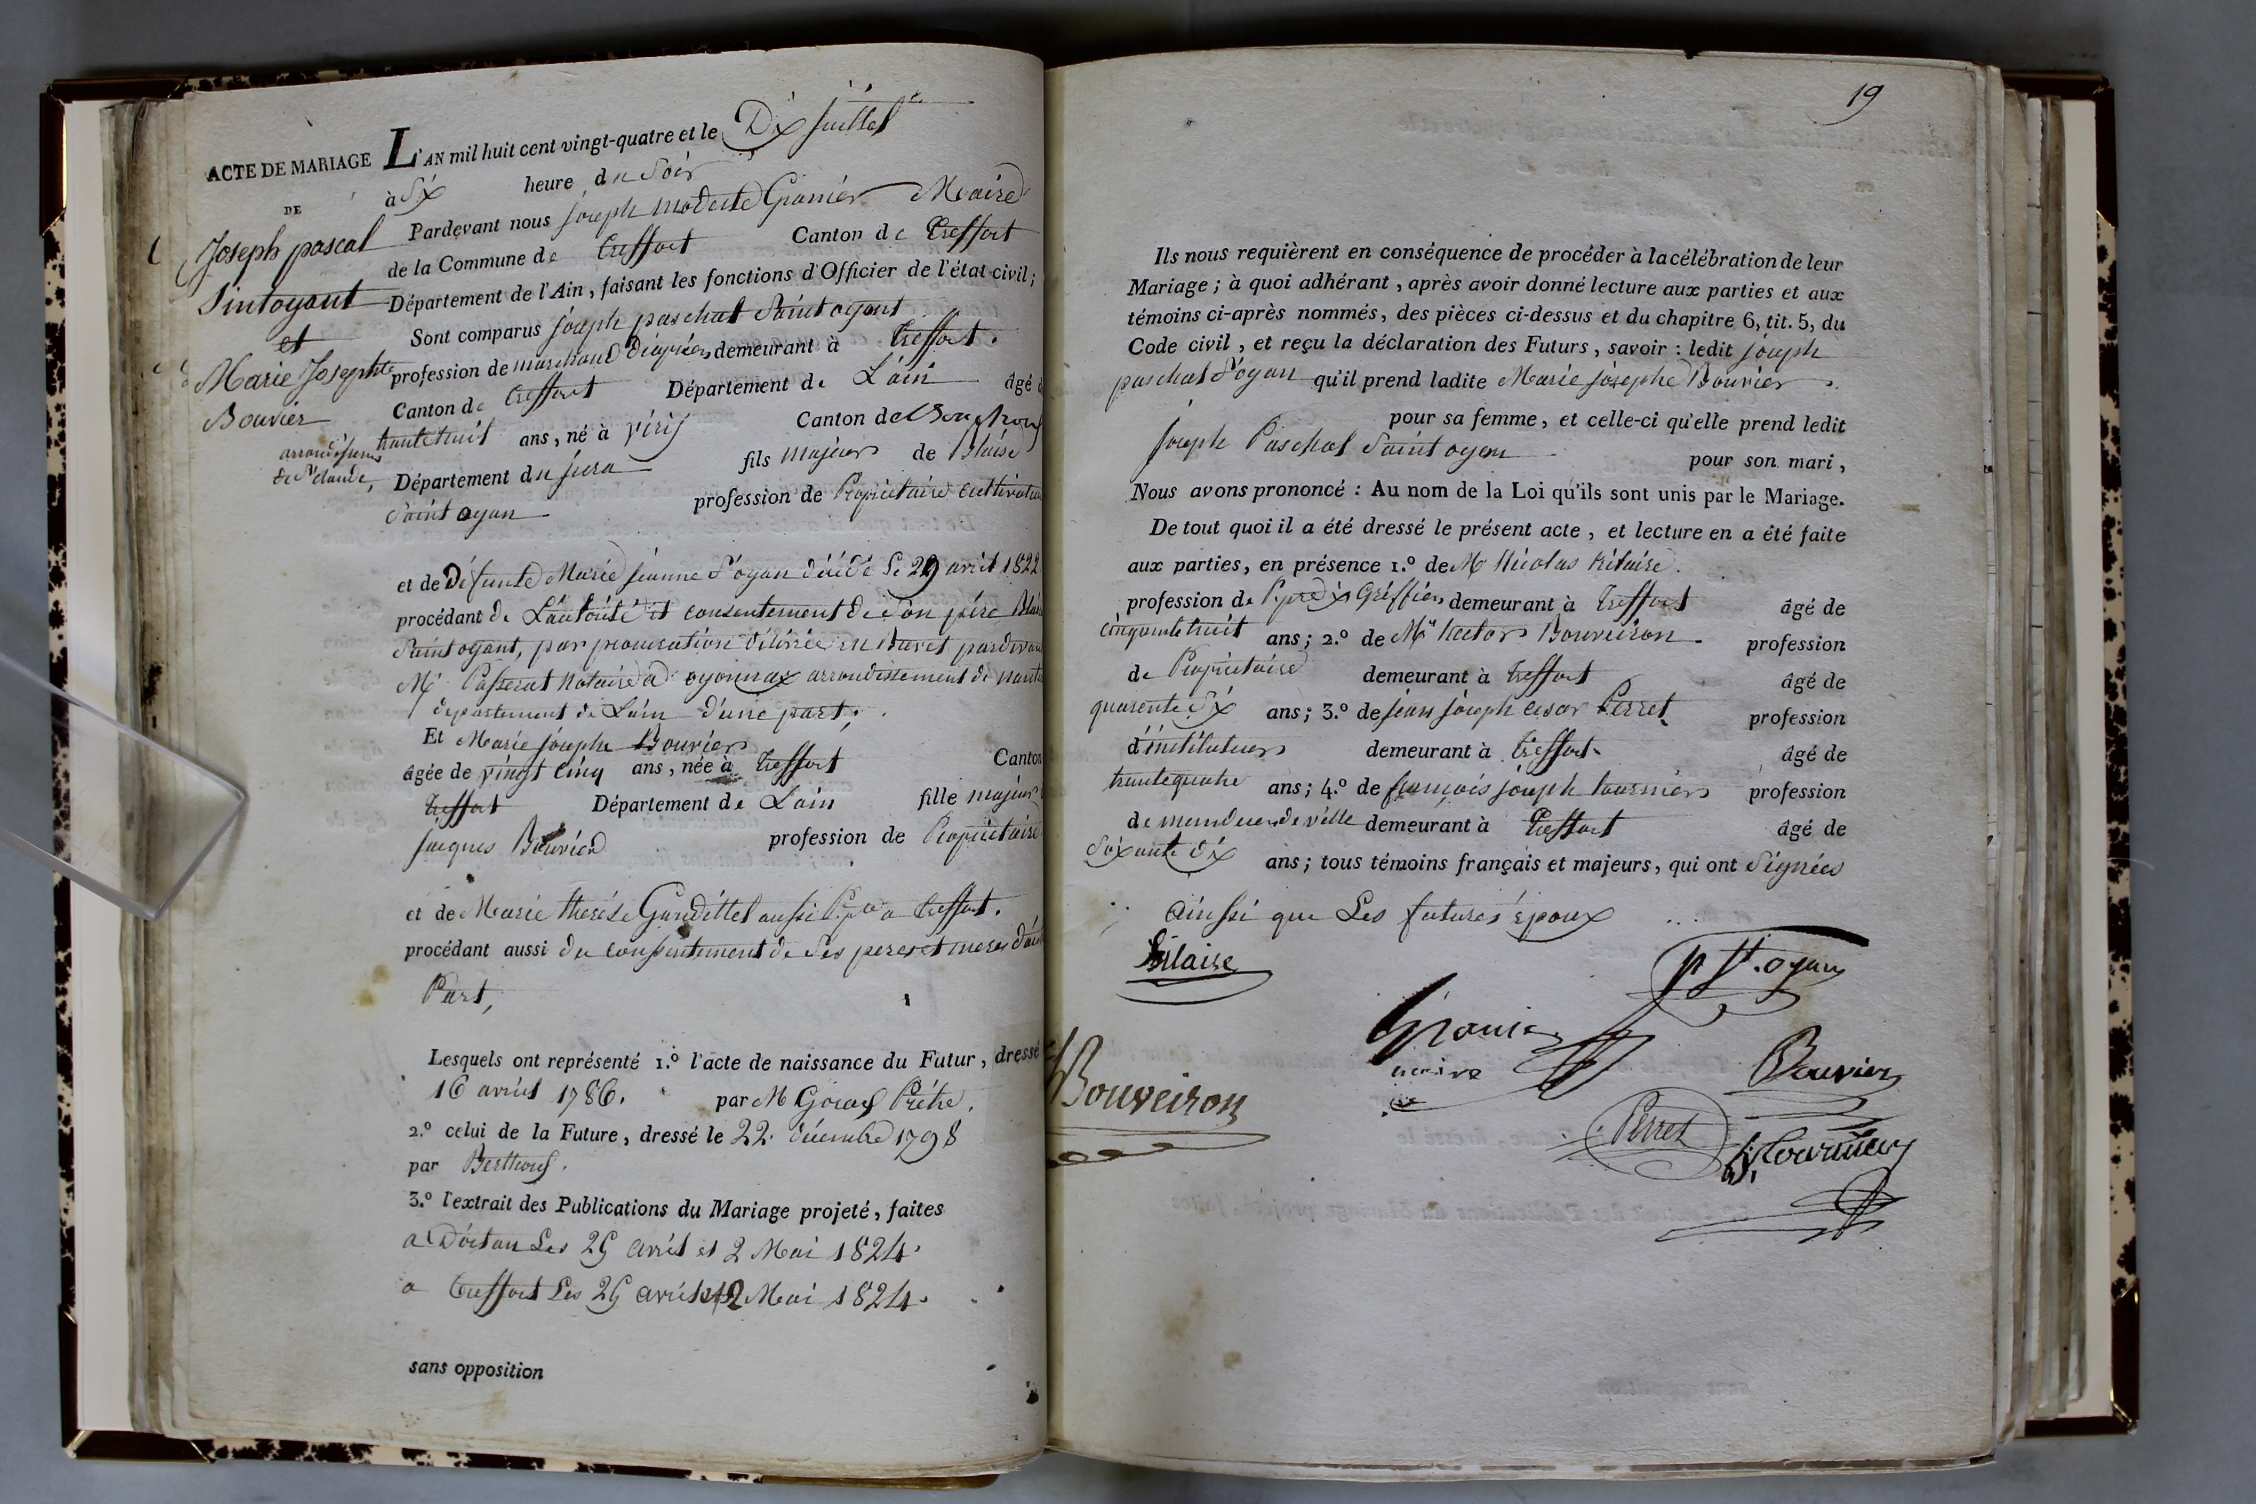 ACTE DE MARIAGE
DE
Joseph pascal
Sintoyant
et
Marie Josephte
Bouvier
L'AN mil huit cent vingt-quatre et le Dix juillet
à Six heure du Soir
Pardevant nous joseph modeste Granier Maire
de la Commune de treffort Canton de treffort
Département de l'Ain, faisant les fonctions d'Officier de l'état civil;
Sont comparus joseph paschal Saint oyant
profession de marchand demeurant à treffort.
Canton de treffort Département de L'ain âgé
trente huit ans, né à viry Canton de
arrondissem
de St Claude,
Département du jura fils majeur de Blaise
Saint oyan profession de Propriétaire Cultivateur
et de Défunte Marie jeanne St oyan décédé Le 29 avril 1822
procédant de L'autorité et consentement de Son père
Saint oyant, par procuration délivrée en Brevet pardevant
Mr Passerat Notaire à oyonnax arrondissement de
département de L'ain d'une part;
Et Marie josephe Bouvier
âgée de vingt cinq ans, née à treffort Canton
treffort Département de L'ain fille majeur
jacques Bouvier profession de Propriétaire
et de Marie therese aussi a treffort.
procédant aussi du consentement de Ses peres et meres
Part,
Lesquels ont représenté 1.º l'acte de naissance du Futur, dressé
16 avril 1786. par Mr Prêtre.
2.º celui de la Future, dressé le 22 décembre 1798
par
3.º l'extrait des Publications du Mariage projeté, faites
a Dortan Les 25 avril et 2 Mai 1824.
a treffort Les 25 avril et 2 Mai 1824.
sans opposition
19
Ils nous requièrent en conséquence de procéder à la célébration de leur
Mariage; à quoi adhérant, après avoir donné lecture aux parties et aux
témoins ci-après nommés, des pièces ci-dessus et du chapitre 6, tit. 5, du
Code civil, et reçu la déclaration des Futurs, savoir : ledit joseph
paschal St oyan qu'il prend ladite Marie josephe Bouvier
pour sa femme, et celle-ci qu'elle prend ledit
joseph Paschal Saint oyan pour son mari,
Nous avons prononcé : Au nom de la Loi qu'ils sont unis par le Mariage.
De tout quoi il a été dressé le présent acte, et lecture en a été faite
aux parties, en présence 1.º de Mr Nicolas hilaire.
profession de Greffier demeurant à treffort âgé de
cinquante huit ans; 2.º de Mr hector Bouveiron profession
de Propriétaire demeurant à treffort âgé de
quarente Six ans; 3.º de jean joseph cesar Perret profession
d'instituteur demeurant à treffort âgé de
trente quatre ans; 4.º de françois joseph tournier profession
de de ville demeurant à treffort âgé de
Soixante dix ans; tous témoins français et majeurs, qui ont Signées
ainssi que Les futures époux
hilaire
St. oyan
Granier
maire
Bouvier
Bouveiron
Perret
tournier